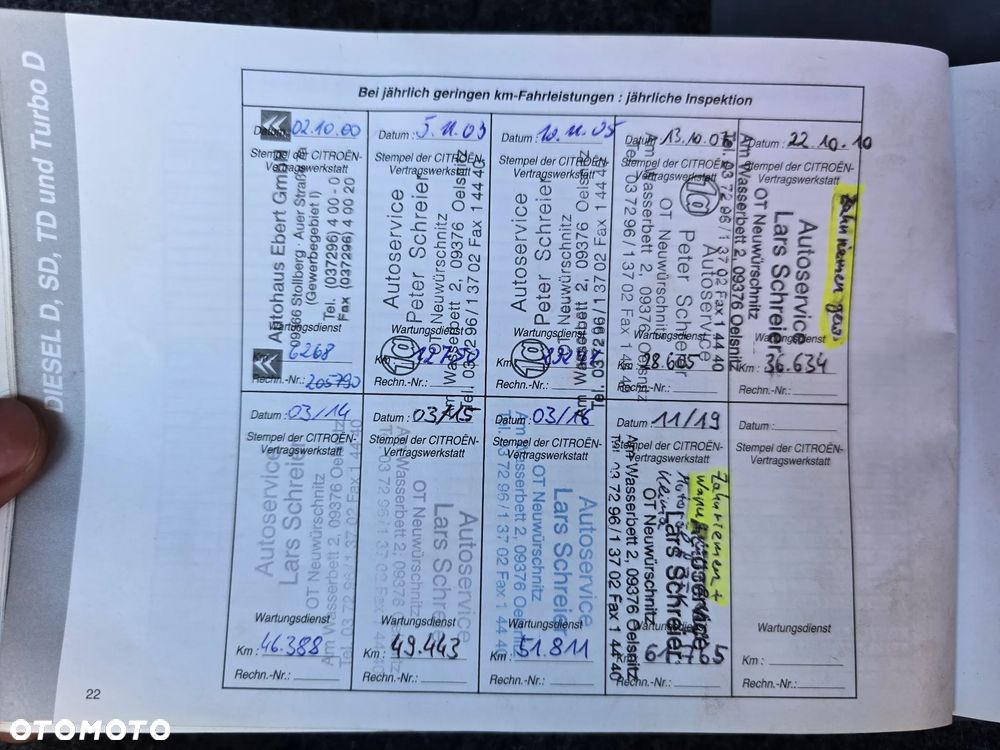 DIESEL D, SD, TD und Turbo D
Bei jährlich geringen km-Fahrleistungen : jährliche Inspektion
Datum : 02.10.00
Stempel der CITROËN-
Vertragswerkstatt
Autohaus Ebert GmbH
09366 Stollberg · Auer Straße
(Gewerbegebiet I)
Tel. (037296) 4 00 - 0
Fax (037296) 4 00 20
Wartungsdienst
Km : 6268
Rechn.-Nr.: 205790
Datum : 5.11.03
Stempel der CITROËN-
Vertragswerkstatt
Autoservice
Peter Schreier
OT Neuwürschnitz
Am Wasserbett 2, 09376 Oelsnitz
Tel. 03 72 96 / 1 37 02 Fax 1 44 40
Wartungsdienst
Km :
Rechn.-Nr.:
Datum : 10.11.05
Stempel der CITROËN-
Vertragswerkstatt
Autoservice
Peter Schreier
OT Neuwürschnitz
Am Wasserbett 2, 09376 Oelsnitz
Tel. 03 72 96 / 1 37 02 Fax 1 44 40
Wartungsdienst
Km :
Rechn.-Nr.:
Datum : 13.10.07
Stempel der CITROËN-
Vertragswerkstatt
Autoservice
Peter Schreier
OT Neuwürschnitz
Am Wasserbett 2, 09376 Oelsnitz
Tel. 03 72 96 / 1 37 02 Fax 1 44 40
Wartungsdienst
Km : 28.615
Rechn.-Nr.:
Datum : 22.10.10
Stempel der CITROËN-
Vertragswerkstatt
Zahnriemen gew.
Autoservice
Lars Schreier
OT Neuwürschnitz
Am Wasserbett 2, 09376 Oelsnitz
Tel. 03 72 96 / 1 37 02 Fax 1 44 40
Wartungsdienst
Km : 36.634
Rechn.-Nr.:
Datum : 03/14
Stempel der CITROËN-
Vertragswerkstatt
Autoservice
Lars Schreier
OT Neuwürschnitz
Am Wasserbett 2, 09376 Oelsnitz
Tel. 03 72 96 / 1 37 02 Fax 1 44 40
Wartungsdienst
Km : 46.388
Rechn.-Nr.:
Datum : 03/15
Stempel der CITROËN-
Vertragswerkstatt
Autoservice
Lars Schreier
OT Neuwürschnitz
Am Wasserbett 2, 09376 Oelsnitz
Tel. 03 72 96 / 1 37 02 Fax 1 44 40
Wartungsdienst
Km : 49.443
Rechn.-Nr.:
Datum : 03/16
Stempel der CITROËN-
Vertragswerkstatt
Autoservice
Lars Schreier
OT Neuwürschnitz
Am Wasserbett 2, 09376 Oelsnitz
Tel. 03 72 96 / 1 37 02 Fax 1 44 40
Wartungsdienst
Km : 51.811
Rechn.-Nr.:
Datum : 11/19
Stempel der CITROËN-
Vertragswerkstatt
Zahnriemen +
Autoservice
Lars Schreier
OT Neuwürschnitz
Am Wasserbett 2, 09376 Oelsnitz
Tel. 03 72 96 / 1 37 02 Fax 1 44 40
Wartungsdienst
Km :
Rechn.-Nr.:
Datum :
Stempel der CITROËN-
Vertragswerkstatt
Wartungsdienst
Km :
Rechn.-Nr.:
22
OTOMOTO